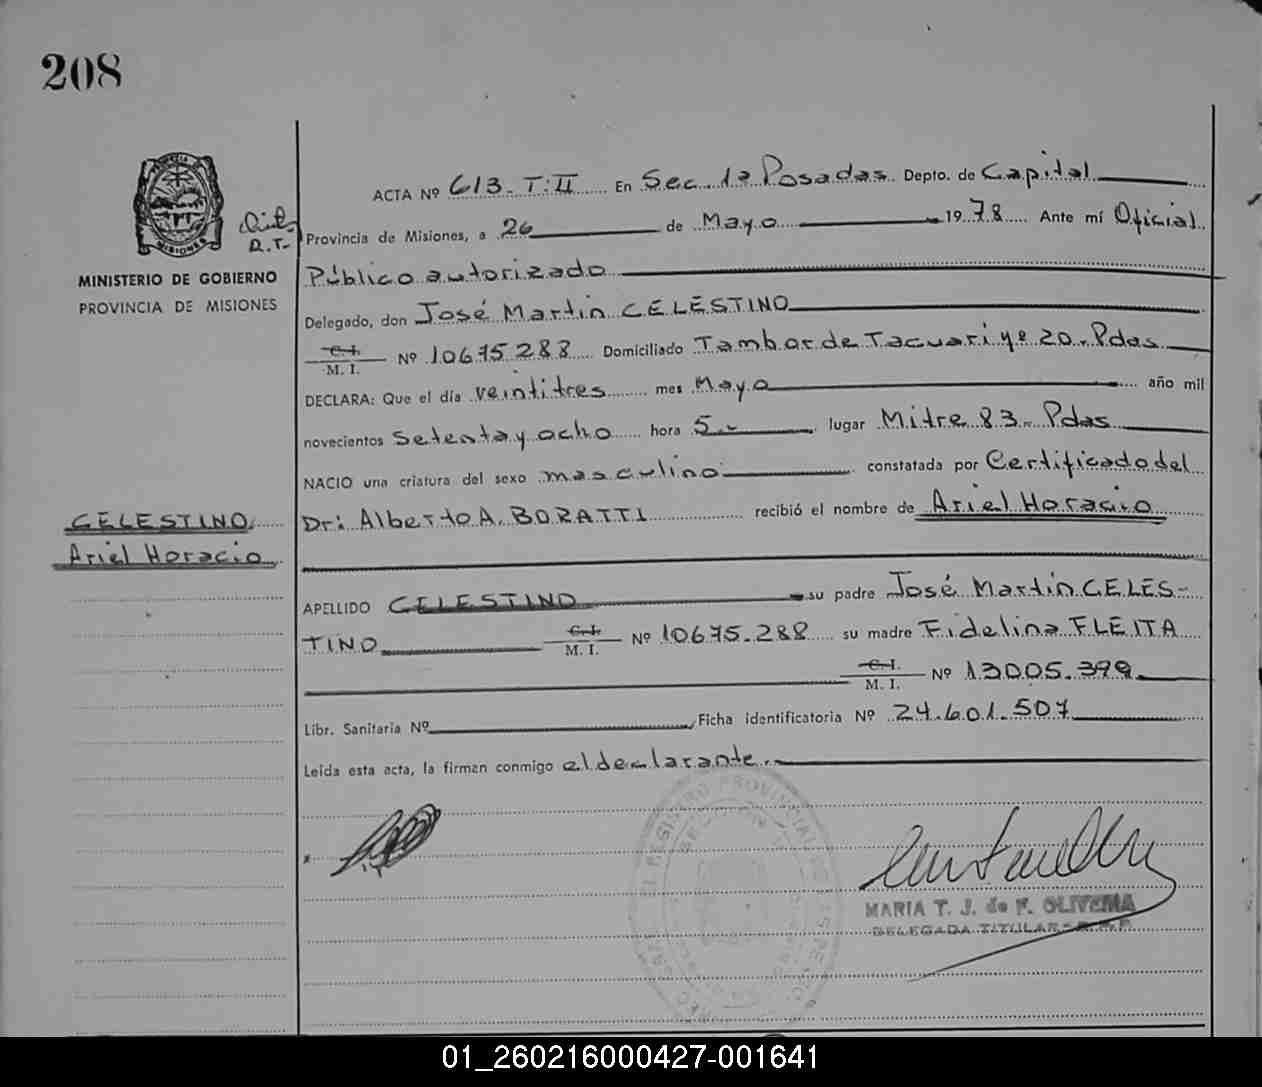 208
ACTA Nº 613. T: II En Sec. 1ª Posadas Depto. de Capital
Provincia de Misiones, a 26 de Mayo 1978 Ante mí Oficial
D.T.
MINISTERIO DE GOBIERNO
PROVINCIA DE MISIONES
Público autorizado
Delegado, don José Martín CELESTINO
C. I.
M. I. Nº 10675.288 Domiciliado Tambor de Tacuarí yº 20. Pdas
DECLARA: Que el día veintitres mes Mayo año mil
novecientos setenta y ocho hora 5.- lugar Mitre 83. Pdas
NACIO una criatura del sexo masculino constatada por Certificado del
CELESTINO
Ariel Horacio
Dr: Alberto A. BORATTI recibió el nombre de Ariel Horacio
APELLIDO CELESTINO su padre José Martín CELES-
TINO C. I. M. I. Nº 10675.288 su madre Fidelina FLEITA
C. I. M. I. Nº 13005.399
Libr. Sanitaria Nº Ficha identificatoria Nº 24.601.507
Leída esta acta, la firman conmigo el declarante.
REGISTRO PROVINCIAL
SECCION
MARIA T. J. de F. OLIVEIRA
DELEGADA TITULAR
01_260216000427-001641